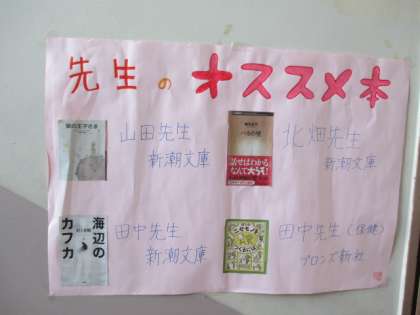 先生のオススメ本
山田先生
新潮文庫
北畑先生
新潮文庫
話せばわかる
なんて大うそ!
海辺の
カフカ
田中先生
新潮文庫
田中先生(保健)
ブロンズ新社